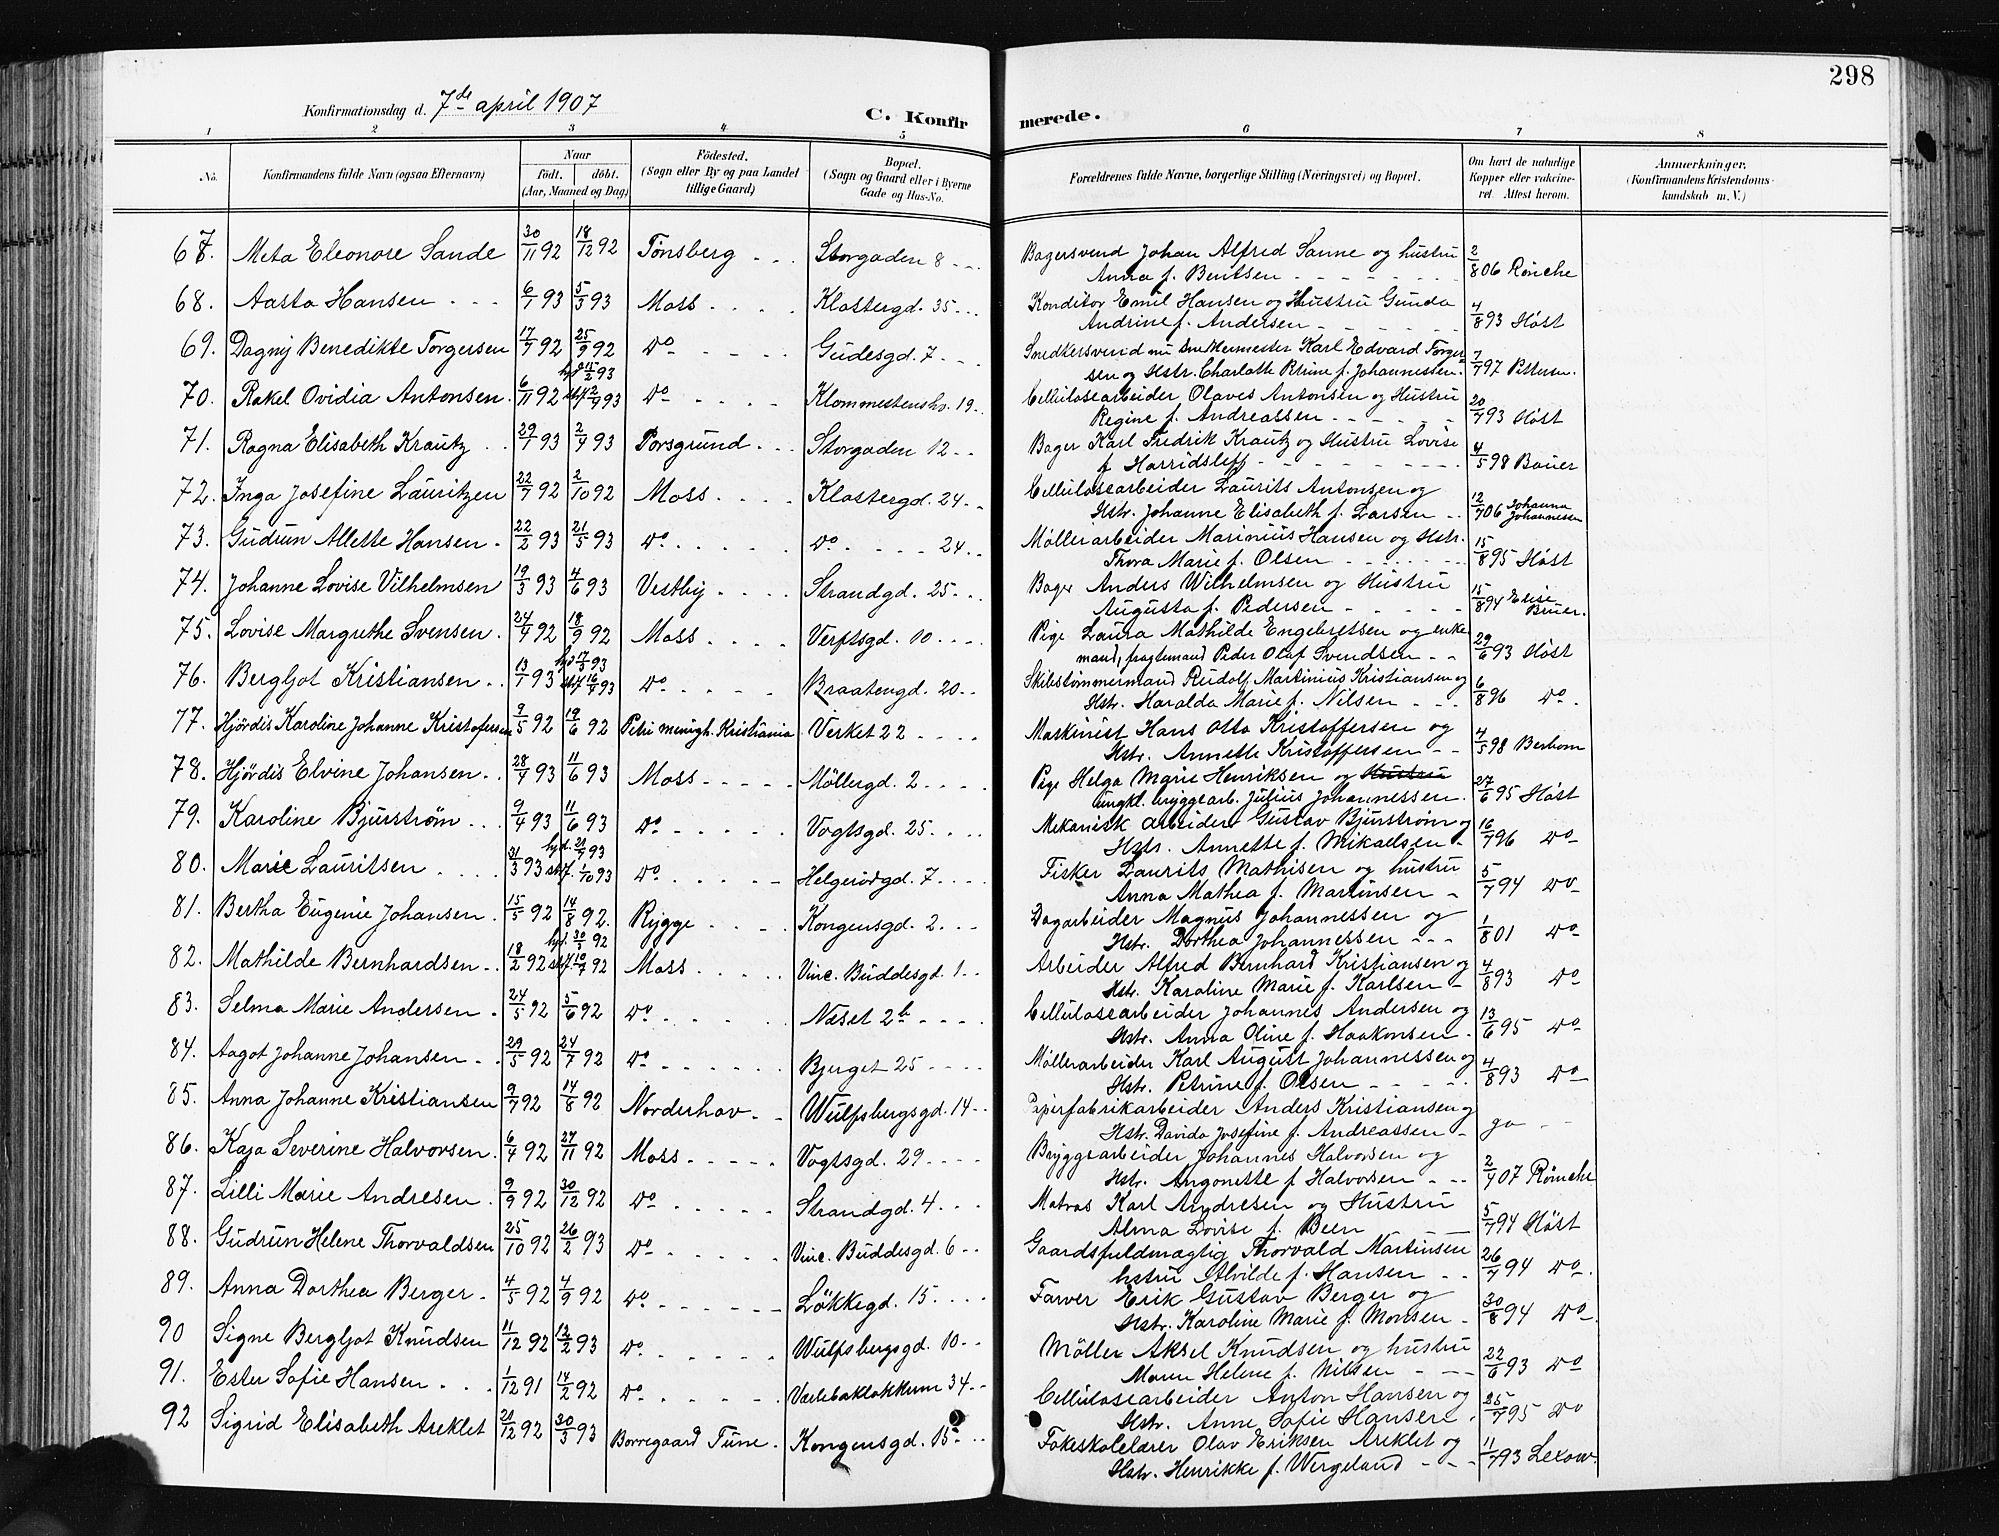 298
Konfirmationsdag d. 7de april 1907
C. Konfirmerede.
1 2 3 4 5 6 7 8
No. Konfirmandens fulde Navn (ogsaa Efternavn) Naar født. døbt. (Aar, Maaned og Dag) Fødested. (Sogn eller By og paa Landet tillige Gaard) Bopæl. (Sogn og Gaard eller i Byerne Gade og Hus-No. Forældrenes fulde Navne, borgerlige Stilling (Næringsvei) og Bopæl. Om havt de naturlige Kopper eller vaccineret. Attest herom. Anmærkninger. (Konfirmandens Kristendomskundskab m. V.)
67. Meta Eleonore Sande 30/11 92 18/12 92 Tønsberg Storgaden 8 Bagersvend Johan Alfred Sanne og hustru 2/8 06 Rønche
Anna f. Bentsen
68. Aasta Hansen 6/1 93 5/3 93 Moss Klostergd. 35 Konditor Emil Hansen og Hustru Gunda 4/8 93 Høst
Andrine f. Andersen
69. Dagny Benedikte Torgersen 17/7 92 25/9 92 Do Gudesgd. 7 Snedkersvend nu Karl Edvard Torger- 7/7 97 Petersen
sen og Hstr. Charlotte Petrine f. Johannessen
70. Rakel Ovidia Antonsen 6/11 92 hjd 11/2 93 stf 2/4 93 Do 19 Cellulosearbeider Olaves Antonsen og Hustru 20/7 93 Høst
Regine f. Andreassen
71. Ragna Elisabeth Krautz 29/1 93 2/4 93 Porsgrund Storgaden 12 Bager Karl Fredrik Krautz og Hustru Lovise 4/5 98 Bauer
f Harridsleff
72. Inga Josefine Lauritzen 22/7 92 2/10 92 Moss Klostergd. 24 Cellulosearbeider Laurits Antonsen og 12/7 06 Johanna Johannessen
Hstr. Johanne Elisabeth f. Larsen
73. Gudrun Allette Hansen 22/2 93 21/5 93 Do Do 24 Møllerarbeider Marinius Hansen og Hstr. 15/8 95 Høst
Thora Marie f. Olsen
74. Johanne Lovise Vilhelmsen 19/3 93 4/6 93 Vestby Strandgd. 25 Bager Anders Wilhelmsen og Hustru 15/8 94 Elise Bruer.
Augusta f. Pedersen
75. Lovise Margrethe Svensen 24/4 92 18/9 92 Moss Verftsgd. 10 Pige Laura Mathilde Engebretsen og enke 29/6 93 Høst
mand, fragtemand Peder Olaf Svendsen
76. Bergljot Kristiansen 13/1 93 hjd 17/3 93 stf 16/4 93 Do Braatengd. 20 Skibstømmermand Rudolf Martinius Kristiansen og 6/8 96 Do
Hstr. Haralda Marie f. Nilsen
77. Hjørdis Karoline Johanne Kristofersen 9/5 92 19/6 92 Petri menigh. Kristiania Verket 22 Maskinist Hans Otto Kristoffersen og 4/5 98 Berbom
Hstr. Annette Kristoffersen
78. Hjørdis Elvine Johansen 28/4 93 11/6 93 Moss Möllergd. 2 Pige Helga Marie Henriksen og Hustru 27/6 95 Høst
ungkl. bryggearb. Julius Johannessen
79. Karoline Bjurstrøm 9/4 93 11/6 93 Do Vogtsgd. 25 Mekanisk arbeider Gustav Bjurstrøm og 16/7 96 Do
Hstr. Annette f. Mikaelsen
80. Marie Lauritsen 31/3 93 hjd. 21/7 93 stf. 1/10 93 Do Helgerødgd. 7 Fisker Laurits Mathisen og hustru 5/7 94 Do
Anna Mathea f. Martinsen
81. Bertha Eugenie Johansen 15/5 92 14/8 92 Rygge Kongensgd. 2 Dagarbeider Magnus Johannessen og 1/8 01 Do
Hstr. Dorthea Johannessen
82. Mathilde Bernhardsen 18/2 92 hjd. 30/3 92 stf. 10/7 92 Moss Vinc. Buddesgd. 1 Arbeider Alfred Bernhard Kristiansen og 4/8 93 Do
Hstr. Karoline Marie f. Karlsen
83. Selma Marie Andersen 24/5 92 5/6 92 Do Næset 2b Cellulosearbeider Johannes Andersen og 13/6 95 Do
Hstr. Anna Oline f. Haakonsen
84. Aagot Johanne Johansen 29/5 92 24/7 92 Do Bjerget 25 Møllerarbeider Karl August Johannessen og 4/8 93 Do
Hstr. Petrine f. Olsen
85. Anna Johanne Kristiansen 9/7 92 14/8 92 Norderhov Wulfsbergsgd. 14 Papirfabrikarbeider Anders Kristiansen og ja
Hstr. Davida Josefine f. Andreassen
86. Kaja Severine Halvorsen 6/4 92 27/11 92 Moss Vogtsgd. 29 Bryggearbeider Johannes Halvorsen og 2/4 07 Rønche
Hstr. Angonette f Halvorsen
87. Lilli Marie Andresen 9/9 92 30/12 92 Do Strandgd. 4 Matros Karl Andresen og Hustru 5/7 94 Høst
Alma Lovise f. Been
88. Gudrun Helene Thorvaldsen 25/10 92 26/2 93 Do Vinc. Buddesgd. 6 Gaardsfuldmægtig Thorvald Martinsen 26/7 94 Do
hstru Alvilde f. Hansen
89. Anna Dorthea Berger 4/5 92 4/9 92 Do Løkkegd. 15 Farver Erik Gustav Berger og 30/8 94 Do
Hstr. Karoline Marie f. Monsen
90 Signe Bergljot Knudsen 11/12 92 12/2 93 Do Wulfsbergsgd. 10 Møller Aksel Knudsen og hustru 22/6 93 Do
Maren Helene f. Nilsen
91. Ester Sofie Hansen 1/12 91 14/2 92 Do Værlebakløkken 34 Cellulosearbeider Anton Hansen og 25/7 95 Do
Hstr. Anne Sofie Hansen
92 Sigrid Elisabeth Areklet 21/12 92 30/3 93 Borregaard Tune Kongensgd. 15 Fokeskolelærer Olav Eriksen Areklet og 11/7 93 Lexow
Hstr. Henrikke f. Wergeland